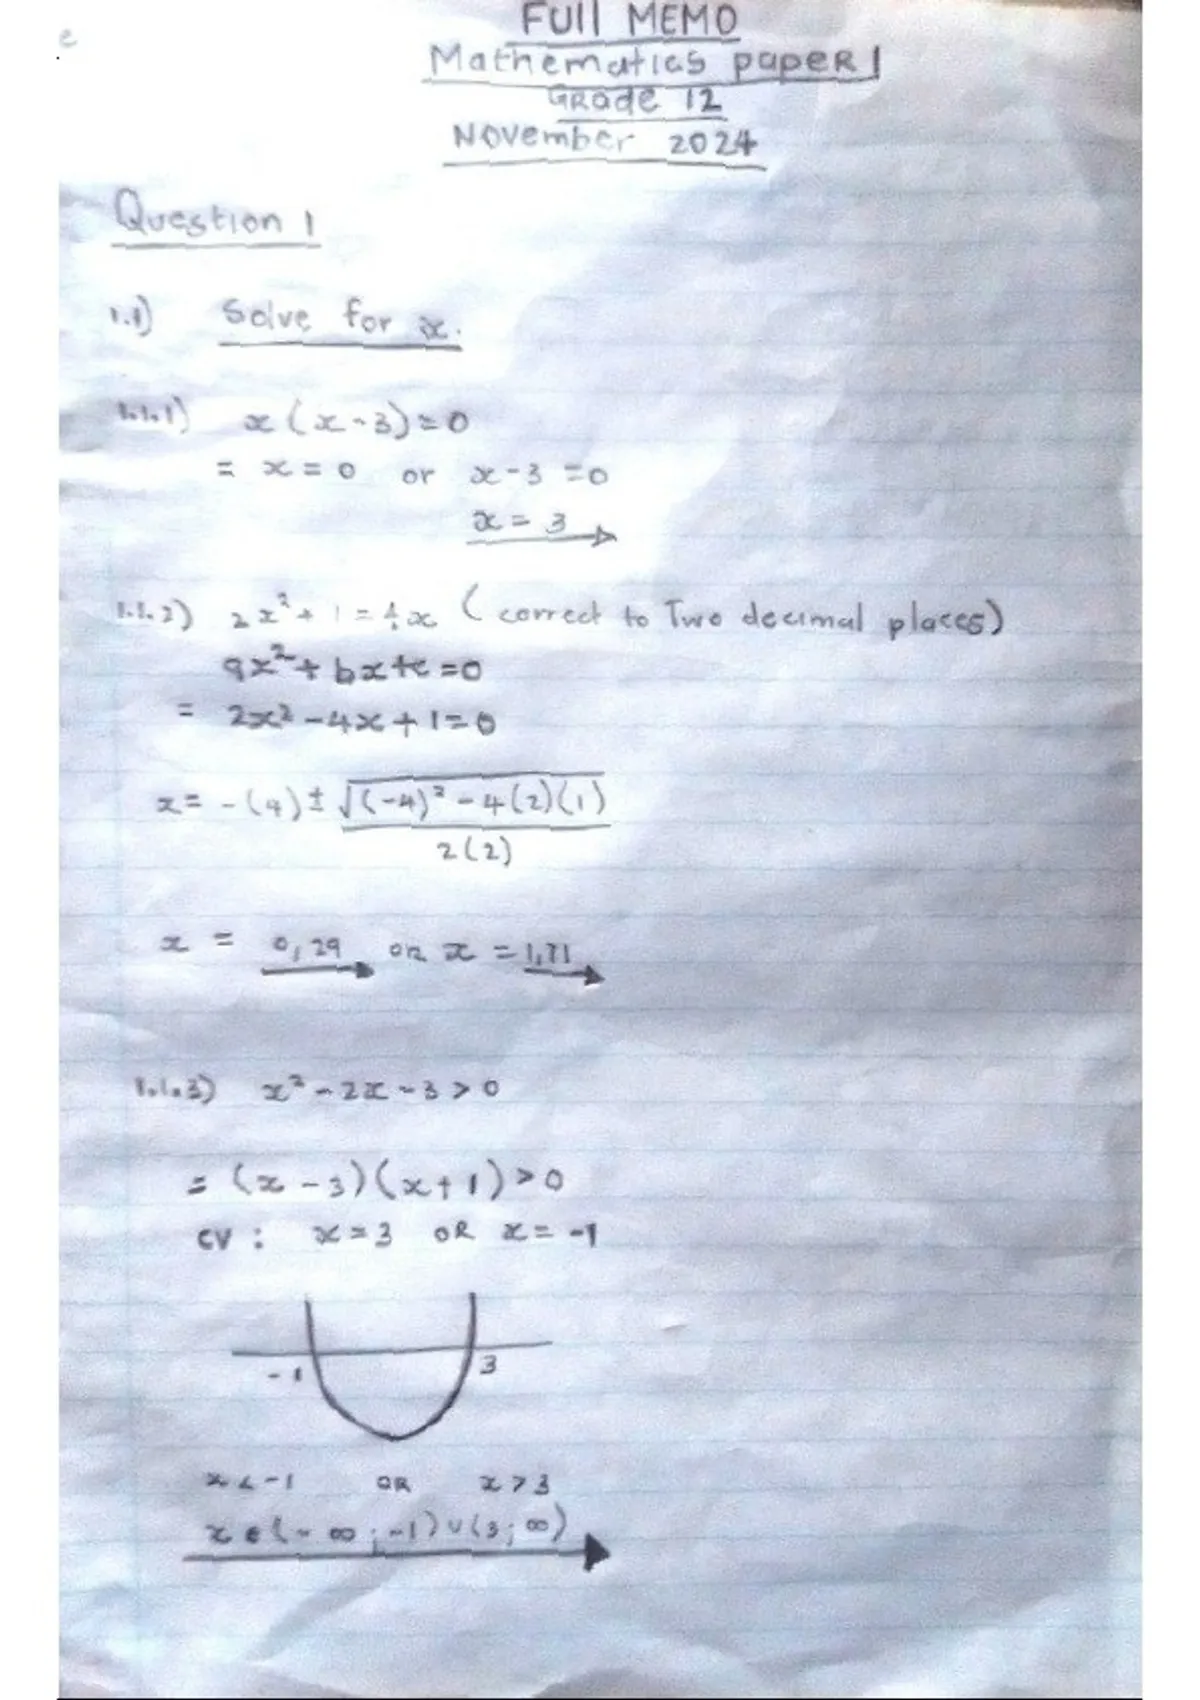 e
FUll MEMO
Mathematics papeR 1
GRade 12
November 2024
Question 1
1.1) Solve for x.
1.1.1) x(x-3)=0
= x = 0 or x-3 =0
x = 3
1.1.2) 2x²+ 1 = 4x ( correct to Two decimal places)
ax²+ bx+c =0
= 2x² -4x + 1=0
x= -(4) ± √(-4)² - 4(2)(1)
2(2)
x = 0,29 OR x = 1,71
1.1.3) x² - 2x - 3 > 0
= (x - 3)(x+1) > 0
CV : x = 3 OR x = -1
-1 3
x < -1 OR x > 3
x ∈ (- ∞ ; -1) ∪ (3; ∞)